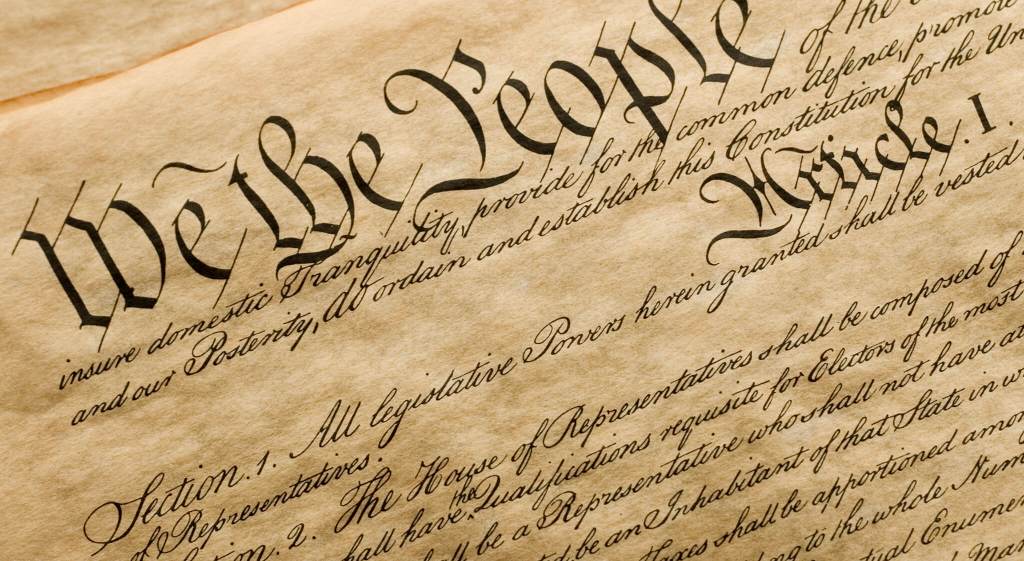 We the People
of the
insure domestic Tranquility, provide for the common defence, promote
and our Posterity, do ordain and establish this Constitution for the Un
Article. I.
Section. 1. All legislative Powers herein granted shall be vested
of Representatives.
2. The House of Representatives shall be composed of
hall have the Qualifications requisite for Electors of the most
ll be a Representative who shall not have at
ed, be an Inhabitant of that State in w
Taxes shall be apportioned amon
ding to the whole Num
tual Enumer